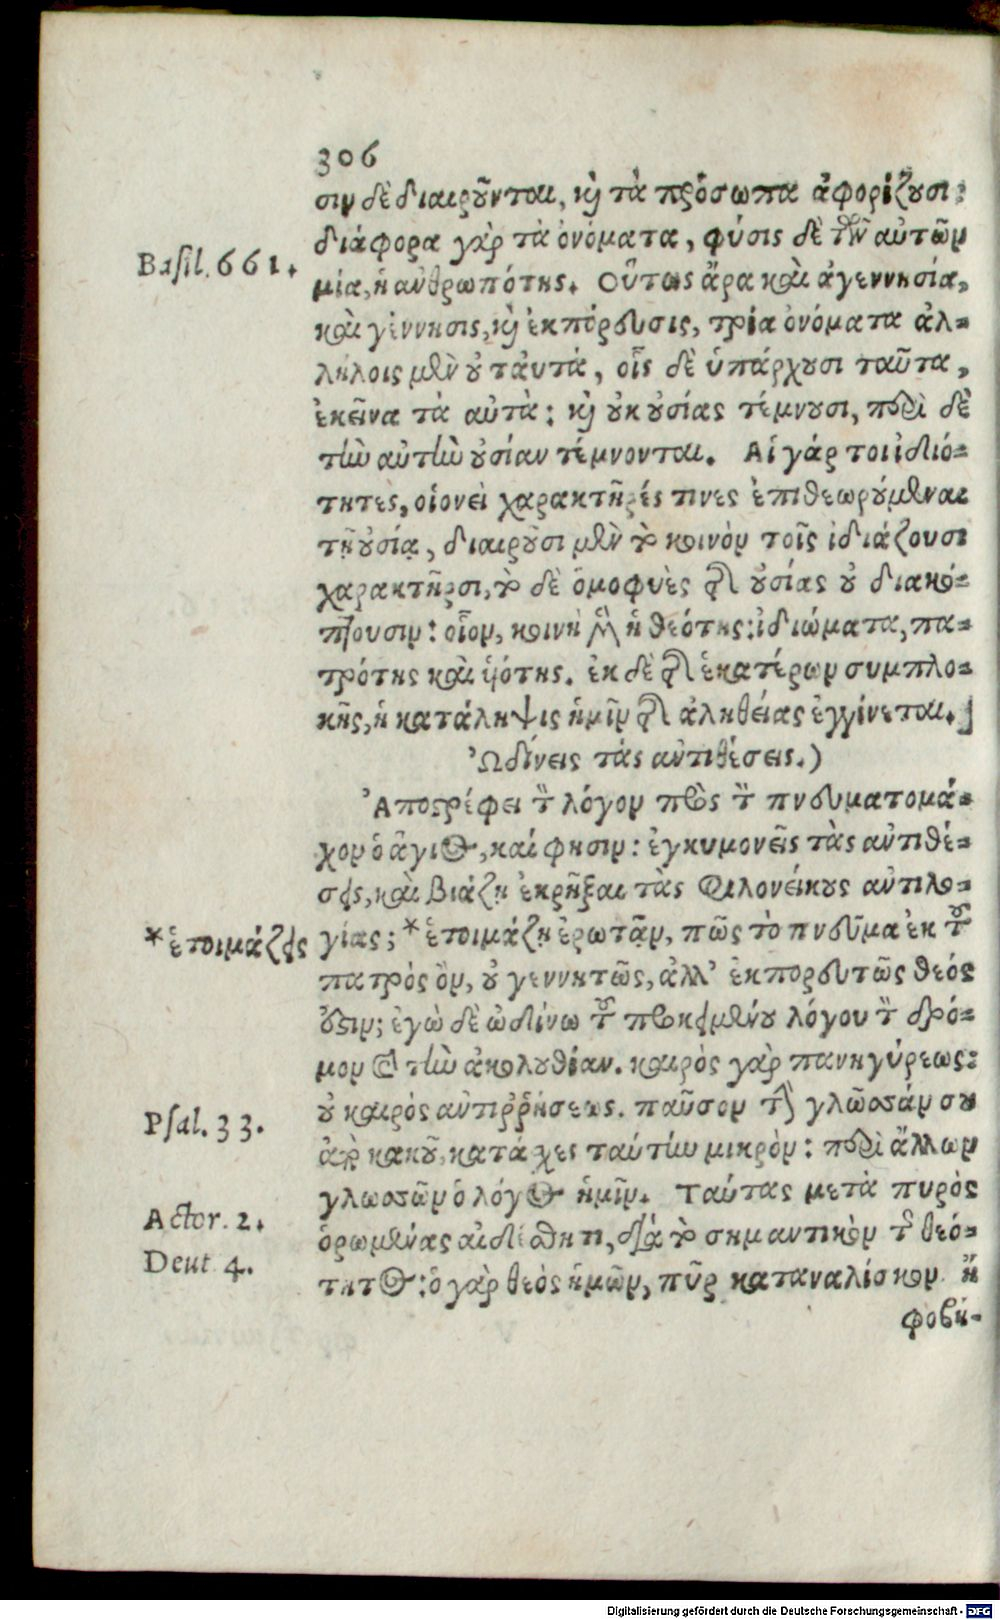 306
σιν δὲ διαιροῦνται, καὶ τὰ πρόσωπα ἀφορίζουσι:
διάφορα γὰρ τὰ ὀνόματα, φύσις δὲ τῶν αὐτῶν
Basil. 661.
μία, ἡ ἀνθρωπότης. Οὕτως ἄρα καὶ ἀγεννησία,
καὶ γέννησις, καὶ ἐκπόρευσις, τρία ὀνόματα ἀλ-
λήλοις μὲν οὐ ταὐτὰ, οἷς δὲ ὑπάρχουσι ταῦτα,
ἐκεῖνα τὰ αὐτὰ: καὶ οὐκ οὐσίας τέμνουσι, περὶ δὲ
τὴν αὐτὴν οὐσίαν τέμνονται. Αἱ γάρ τοι ἰδιό-
τητες, οἱονεὶ χαρακτῆρές τινες ἐπιθεωρούμεναι
τῇ οὐσίᾳ, διαιροῦσι μὲν τὸ κοινὸν τοῖς ἰδιάζουσι
χαρακτῆρσι, τὸ δὲ ὁμοφυὲς τῆς οὐσίας οὐ διακό-
πτουσιν: οἷον, κοινὴ μὲν ἡ θεότης: ἰδιώματα, πα-
τρότης καὶ υἱότης. ἐκ δὲ τῆς ἑκατέρων συμπλο-
κῆς, ἡ κατάληψις ἡμῖν τῆς ἀληθείας ἐγγίνεται.]
Ὠδίνεις τὰς ἀντιθέσεις.)
Ἀποστρέφει τὸν λόγον πρὸς τὸν πνευματομά-
χον ὁ ἅγιος, καί φησιν: ἐγκυμονεῖς τὰς ἀντιθέ-
σεις, καὶ βιάζῃ ἐκρῆξαι τὰς φιλονείκους ἀντιλο-
*ἑτοιμάζεις
γίας; *ἑτοιμάζῃ ἐρωτᾷν, πῶς τὸ πνεῦμα ἐκ τοῦ
πατρὸς ὂν, οὐ γεννητῶς, ἀλλ' ἐκπορευτῶς θεός
ἐστιν; ἐγὼ δὲ ὠδίνω τοῦ προκειμένου λόγου τὸν δρό-
μον καὶ τὴν ἀκολουθίαν. καιρὸς γὰρ πανηγύρεως:
οὐ καιρὸς ἀντιῤῥήσεως. παῦσον τὴν γλῶσσάν σου
Psal. 33.
ἀπὸ κακοῦ, κατάσχες ταύτην μικρὸν: περὶ ἄλλων
γλωσσῶν ὁ λόγος ἡμῖν. Ταύτας μετὰ πυρὸς
Actor. 2.
ὁρωμένας αἰδέσθητι, διὰ τὸ σημαντικὸν τῆς θεό-
Deut 4.
τητος: ὁ γὰρ θεὸς ἡμῶν, πῦρ καταναλίσκον. ἢ
φοβή-
Digitalisierung gefördert durch die Deutsche Forschungsgemeinschaft - DFG